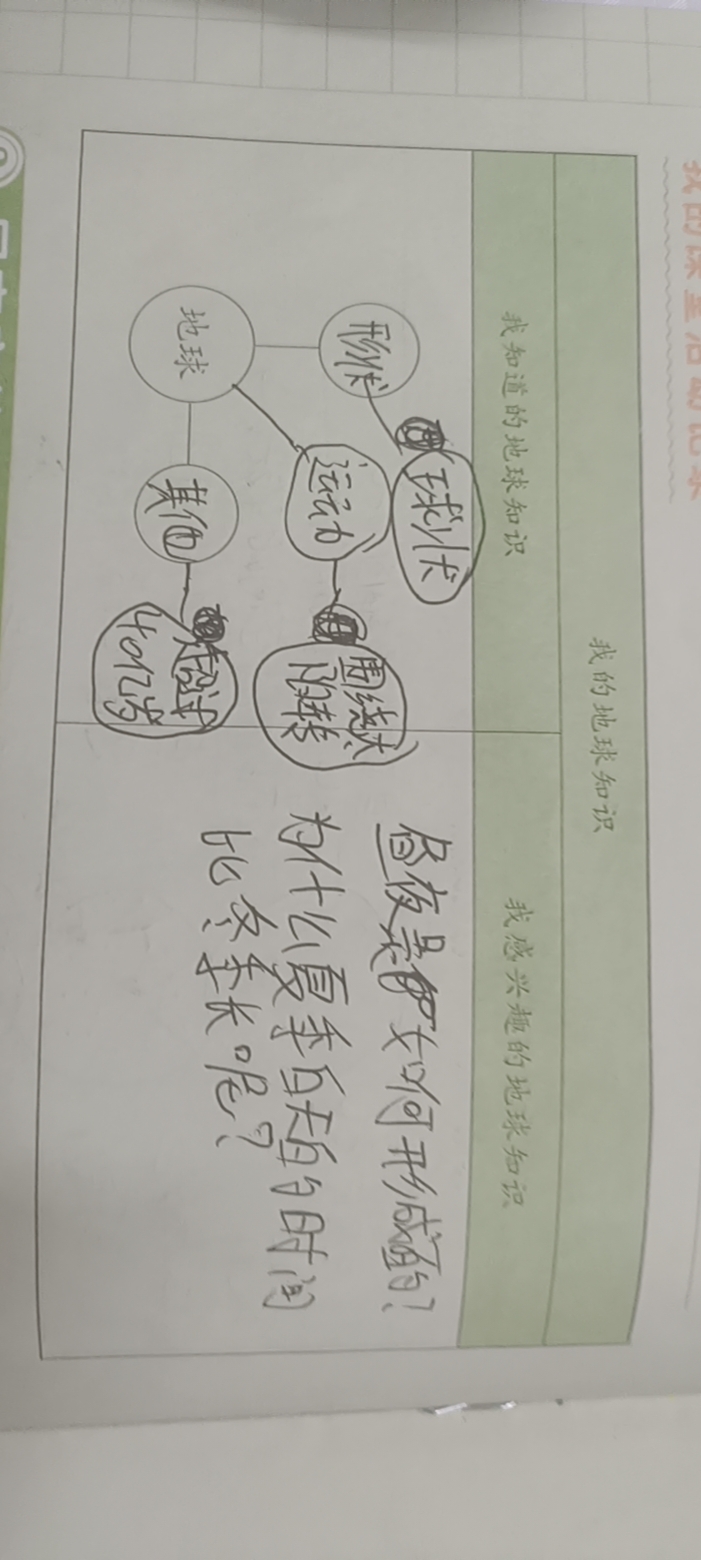 我的课堂活动记录
我的地球知识
我知道的地球知识
我感兴趣的地球知识
形状
球状
地球
运动
围绕太
阳转
其他
超过
40亿岁
昼夜是如何形成的?
为什么夏季白天的时间
比冬季长呢?